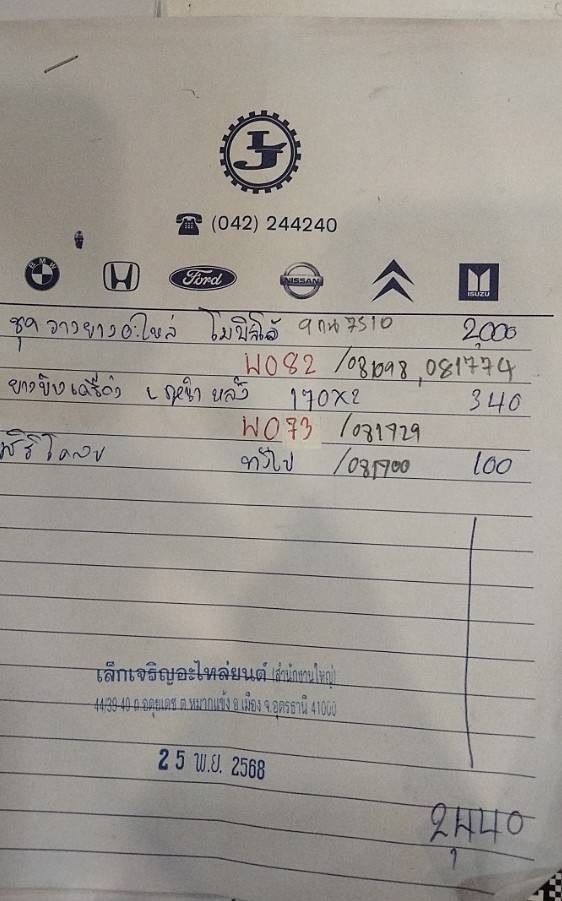 LJ
☎ (042) 244240
BMW Ford NISSAN ISUZU
ชุด วางยางอะไหล่ 7510 2,000
W082 /081098, 081774
หลัง 170x2 340
W073 /081729
ทั่วไป /081700 100
เล็กเจริญอะไหล่ยนต์ (สำนักงานใหญ่)
44/39-40 ถ.อดุยเดช ต.หมากแข้ง อ.เมือง จ.อุดรธานี 41000
25 พ.ย. 2568
2,440